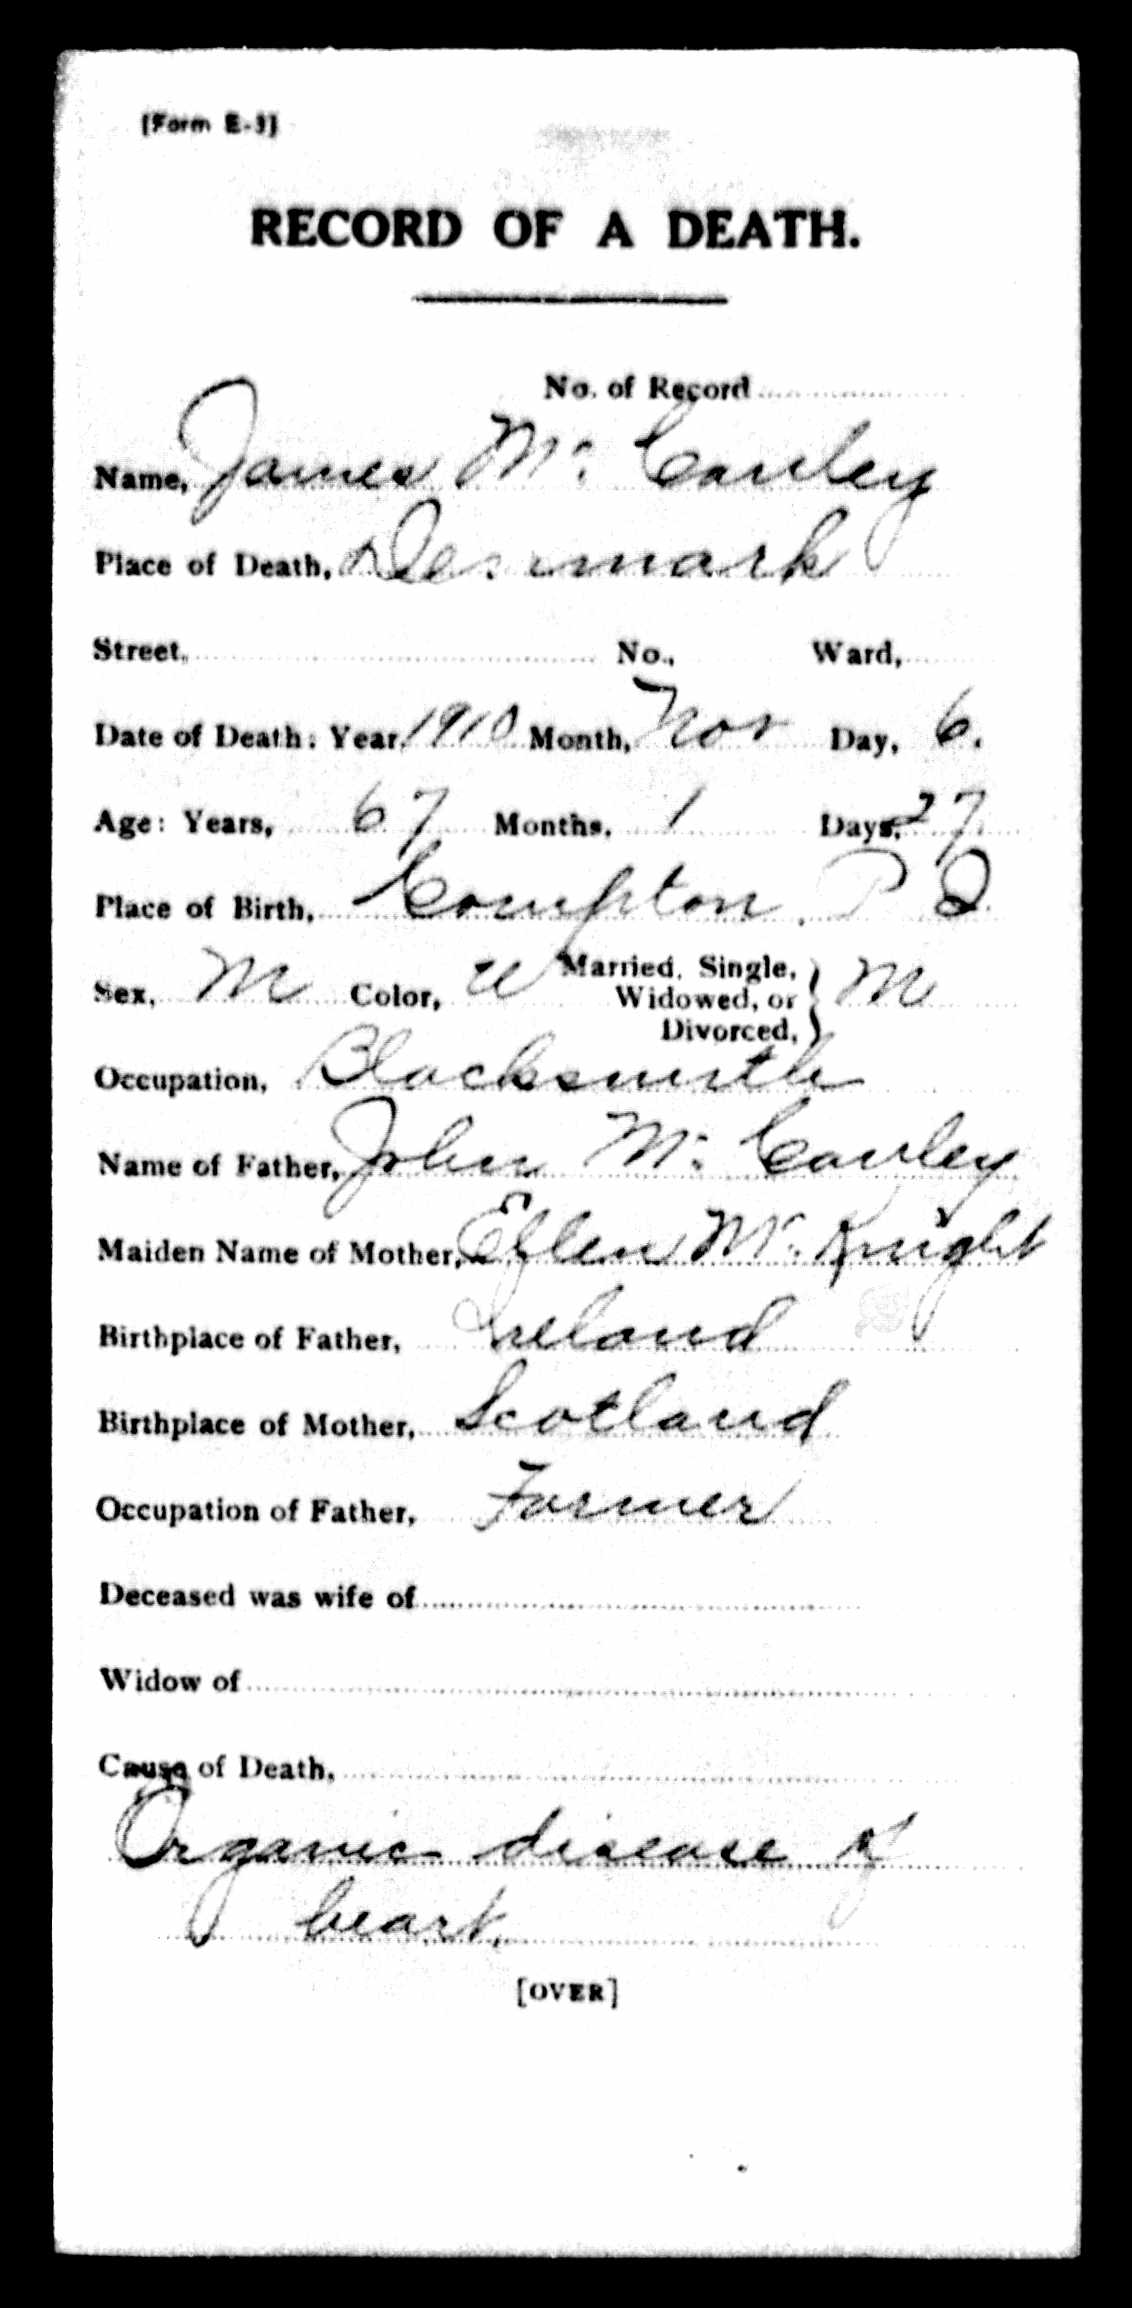 [Form E-3]
RECORD OF A DEATH.
No. of Record
Name, James Mc. Cauley
Place of Death, Denmark
Street, No., Ward,
Date of Death: Year, 1910 Month, Nov Day, 6.
Age: Years, 67 Months, 1 Days, 27
Place of Birth, Compton, P Q
Sex, M Color, W Married, Single, Widowed, or Divorced, } M
Occupation, Blacksmith
Name of Father, John Mc. Cauley
Maiden Name of Mother, Ellen Mc. Knight
Birthplace of Father, Ireland
Birthplace of Mother, Scotland
Occupation of Father, Farmer
Deceased was wife of
Widow of
Cause of Death,
Organic disease of
heart.
[OVER]